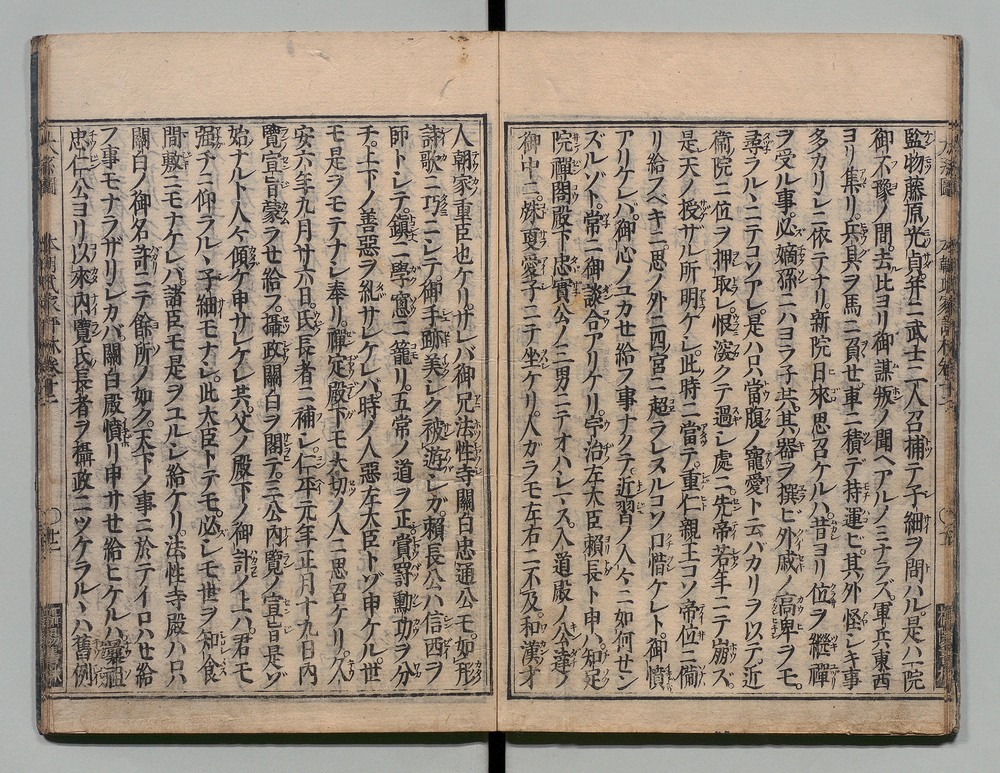 監物藤原光貞并ニ武士二人召捕テ子細ヲ問ハル是ハ一院
御不豫ノ間去比ヨリ御謀叛ノ聞ヘアルノミナラズ軍兵東西
ヨリ集リ兵具ヲ馬ニ負せ車ニ積デ持運ビ其外怪レキ事
多カリレニ依テナリ新院日來思召ケルハ昔ヨリ位ヲ繼禪
ヲ受ル事必嫡孫ニハヨラ子共其器ヲ撰ヒ外戚ノ高卑ヲモ
尋ラルヽニテコソアレ是ハ只當腹ノ寵愛ト云バカリヲ以テ近
衛院ニ位ヲ押取レ恨深クテ過レ處ニ先帝若年ニテ崩ズ
是天ノ授ザル所明ケレ此時ニ當テ重仁親王コソ帝位ニ備
リ給フベキニ思ノ外ニ四宮ニ超ラレヌルコソ口惜ケレト御憤
アリケレバ御心ノユカせ給フ事ナクテ近習ノ人々ニ如何せン
ズルゾト常ニ御談合アリケリ宇治左大臣賴長ト申ハ知足
院禪閤殿下忠實公ノ二男ニテオハレヽス入道殿ノ公達ノ
御中ニ殊更愛子ニテ坐ケリ人ガラモ左右ニ不及和漢才
人朝家重臣也ケリサレバ御兄法性寺關白忠通公モ如形
詩歌ニ巧ニレテ御手跡美レク被遊レガ賴長公ハ信西ヲ
師トレテ鎮ニ學窓ニ籠リ五常ノ道ヲ正賞罰勳功ヲ分
チ上下ノ善惡ヲ糺サレケレバ時ノ人惡左大臣トゾ申ケル世
モ是ヲモテナレ奉リ禪定殿下モ大切ノ人ニ思召ケリ久
安六年九月廿六日氏長者ニ補レ仁平元年正月十九日内
覽宣旨蒙ラせ給フ攝政關白ヲ閣テ三公内覽ノ宣旨是ゾ
始ナルト人々傾ケ申サレケレ共父ノ殿下ノ御計ノ上ハ君モ
强チニ仰ラルヽ子細モナレ此大臣トテモ必レモ世ヲ知食
間敷ニモナケレバ諸臣モ是ヲユルレ給ケリ法性寺殿ハ只
關白ノ御名許ニテ餘所ノ如ク天下ノ事ニ於テイロハせ給
フ事モナラザリレカバ關白殿憤リ申サせ給ヒケルハ曩祖
忠仁公ヨリ以來内覽氏長者ヲ攝政ニツケラルヽハ舊例